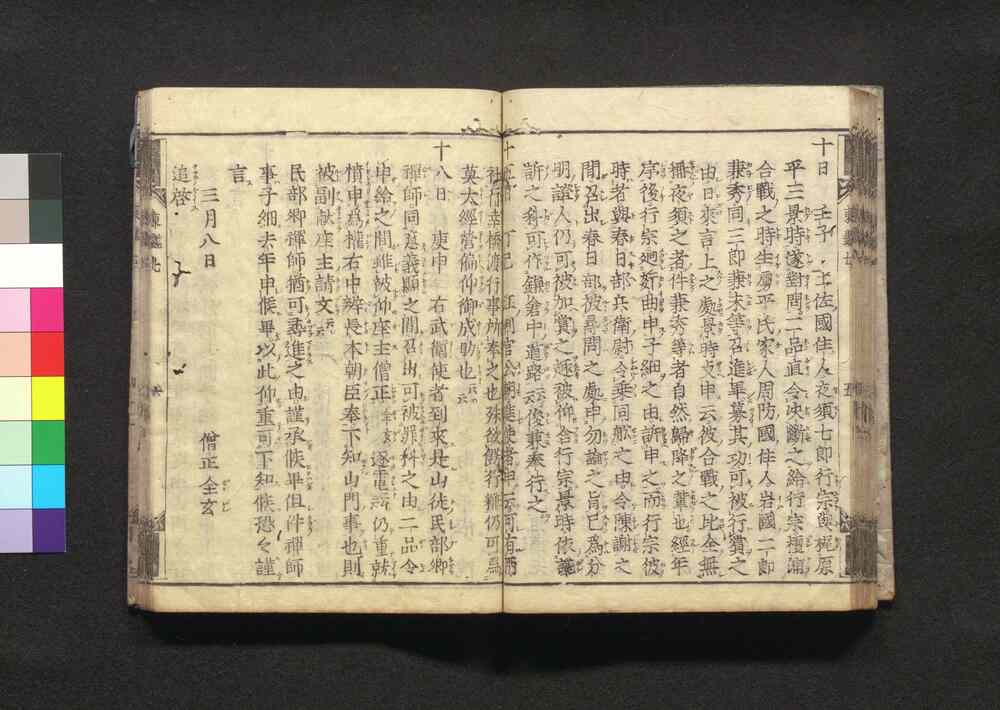 十日 壬子 土佐國住人夜須七郎行宗與梶原
平三景時遂對問二品直令決断之給行宗壇浦
合戰之時生虜平氏家人周防國住人岩國二郎
兼秀同三郎兼末等召進畢募其功可被行賞之
由日來言上之處景時支申云彼合戰之比全無
稱夜須之者件兼秀等者自然歸降之輩也經年
序後行宗廻姧曲申子細之由訴申之而行宗彼
時者與春日部兵衛尉令乗同舩之由令陳謝之
間召出春日部被尋問之處申勿論之旨已為分
明證人仍可被加賞之趣被仰含行宗景時依讒
訴之科可作鎌倉中道路云云俊兼奉行之
社行幸橋渡行事所奉之也殊欲
莫太經營偏仰御成助也云云
十八日 庚申 右武衛使者到來是山徒民部卿
禪師同意義顯之間召出可被罪科之由二品令
申給之間雖被仰座主僧正全玄逐電云云仍重就
憤申為權右中辨長本朝臣奉下知山門事也則
被副献座主請文云云
民部卿禪師猶可尋進之由謹承候畢但件禪師
事子細去年申候畢以此仰重可下知候恐々謹
言
三月八日 僧正全玄
追啓